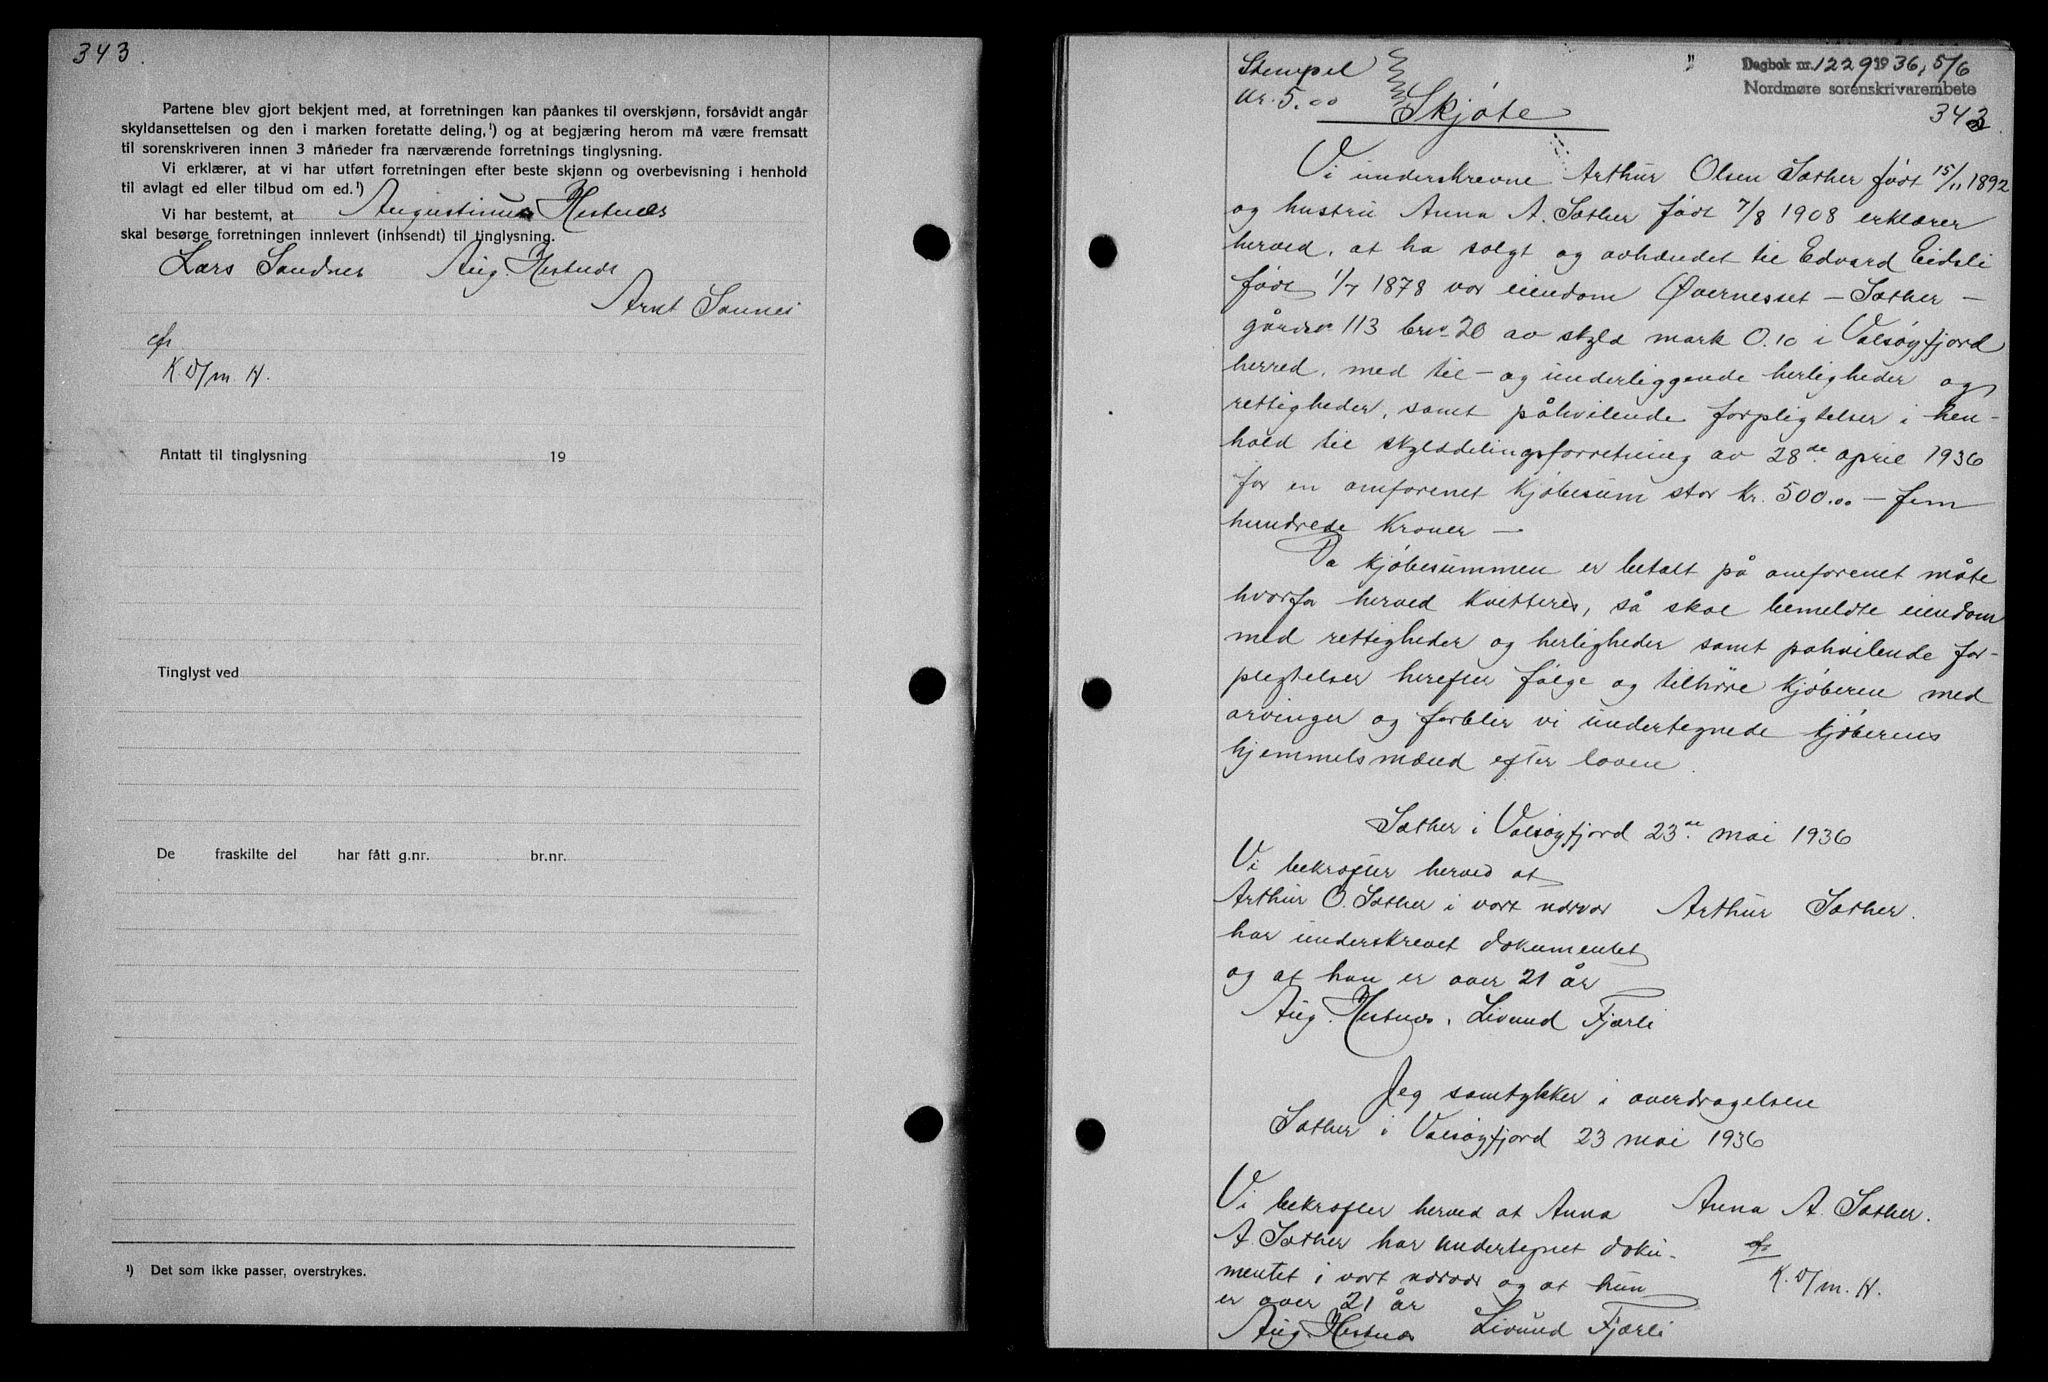 343.
Partene blev gjort bekjent med, at forretningen kan påankes til overskjønn, forsåvidt angår
skyldansettelsen og den i marken foretatte deling,¹) og at begjæring herom må være fremsatt
til sorenskriveren innen 3 måneder fra nærværende forretnings tinglysning.
Vi erklærer, at vi har utført forretningen efter beste skjønn og overbevisning i henhold
til avlagt ed eller tilbud om ed.¹)
Vi har bestemt, at Augustinus Hestnes
skal besørge forretningen innlevert (innsendt) til tinglysning.
Lars Sandnes Aug. Hestnes
Arnt Sannes
K. D/m. H.
Antatt til tinglysning 19
Tinglyst ved
De fraskilte del har fått g.nr. br.nr.
¹) Det som ikke passer, overstrykes.
Stempel
Kr. 5.00
Dagbok nr. 1229 1936, 5/6
Nordmøre sorenskrivarembete
343.
Skjøte
Vi underskrevne Arthur Olsen Sæther født 15/11 1892
og hustru Anna A. Sæther født 7/8 1908 erklærer
herved, at ha solgt og avhændet til Edvard Eidsli
født 1/7 1878 vor eiendom Øvernesset – Sæther –
gårdsno 113 brno 20 av skyld mark 0.10 i Valsøyfjord
herred, med til- og underliggende herligheder og
rettigheder, samt påhvilende forpligtelser i hen-
hold til skylddelingsforretning av 28de april 1936
for en omforenet kjøbesum stor kr. 500.00 – fem
hundrede kroner –
Da kjøbesummen er betalt på omforenet måte
hvorfor herved kvitteres, så skal bemeldte eiendom
med rettigheder og herligheder samt påhvilende for-
pligtelser herefter følge og tilhøre kjøberen med
arvinger og forbler vi undertegnede kjøberens
hjemmelsmænd efter loven.
Sæther i Valsøyfjord 23de mai 1936
Vi bekræfter herved at
Arthur O. Sæther i vort nærvær Arthur Sæther.
har underskrevet dokumentet
og at han er over 21 år
Aug. Hestnes. Eivind Fjærli
Jeg samtykker i overdragelsen
Sæther i Valsøyfjord 23 mai 1936
Vi bekræfter herved at Anna Anna A. Sæther.
A. Sæther har undertegnet doku-
mentet i vort nærvær og at hun K. D/m. H.
er over 21 år
Aug. Hestnes Eivind Fjærli